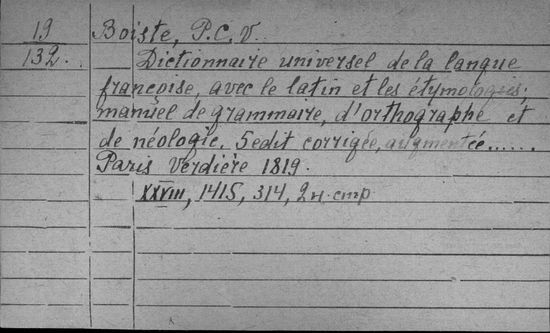 19 Boiste, P.C.V.
132. Dictionnaire universel de la langue
françoise, avec le latin et les étymologies;
manuel de grammaire, d'orthographe et
de néologie, 5 edit corrigée, augmentée......
Paris Verdière 1819.
XXVIII, 1415, 314, 2 н. стр